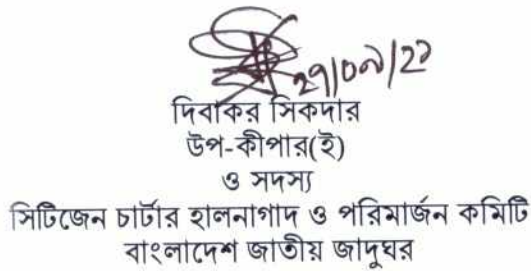 ২৭/০৯/২১
দিবাকর সিকদার
উপ-কীপার(ই)
ও সদস্য
সিটিজেন চার্টার হালনাগাদ ও পরিমার্জন কমিটি
বাংলাদেশ জাতীয় জাদুঘর